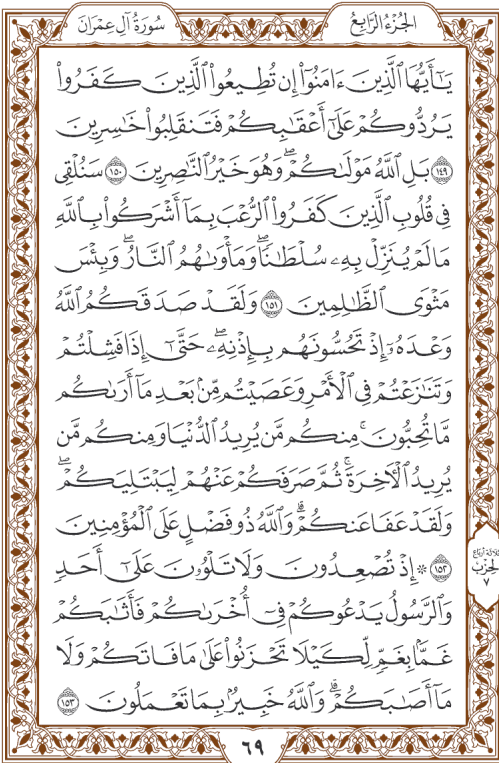 الجُزْءُ الرَّابِعُ
سُورَةُ آلِ عِمْرَانَ
يَٰٓأَيُّهَا ٱلَّذِينَ ءَامَنُوٓا۟ إِن تُطِيعُوا۟ ٱلَّذِينَ كَفَرُوا۟
يَرُدُّوكُمْ عَلَىٰٓ أَعْقَٰبِكُمْ فَتَنقَلِبُوا۟ خَٰسِرِينَ
١٤٩ بَلِ ٱللَّهُ مَوْلَىٰكُمْ ۖ وَهُوَ خَيْرُ ٱلنَّٰصِرِينَ ١٥٠ سَنُلْقِى
فِى قُلُوبِ ٱلَّذِينَ كَفَرُوا۟ ٱلرُّعْبَ بِمَآ أَشْرَكُوا۟ بِٱللَّهِ
مَا لَمْ يُنَزِّلْ بِهِۦ سُلْطَٰنًا ۖ وَمَأْوَىٰهُمُ ٱلنَّارُ ۚ وَبِئْسَ
مَثْوَى ٱلظَّٰلِمِينَ ١٥١ وَلَقَدْ صَدَقَكُمُ ٱللَّهُ
وَعْدَهُۥٓ إِذْ تَحُسُّونَهُم بِإِذْنِهِۦ ۖ حَتَّىٰٓ إِذَا فَشِلْتُمْ
وَتَنَٰزَعْتُمْ فِى ٱلْأَمْرِ وَعَصَيْتُم مِّنۢ بَعْدِ مَآ أَرَىٰكُم
مَّا تُحِبُّونَ ۚ مِنكُم مَّن يُرِيدُ ٱلدُّنْيَا وَمِنكُم مَّن
يُرِيدُ ٱلْءَاخِرَةَ ۚ ثُمَّ صَرَفَكُمْ عَنْهُمْ لِيَبْتَلِيَكُمْ ۖ
وَلَقَدْ عَفَا عَنكُمْ ۗ وَٱللَّهُ ذُو فَضْلٍ عَلَى ٱلْمُؤْمِنِينَ
١٥٢ ۞ إِذْ تُصْعِدُونَ وَلَا تَلْوُۥنَ عَلَىٰٓ أَحَدٍ
وَٱلرَّسُولُ يَدْعُوكُمْ فِىٓ أُخْرَىٰكُمْ فَأَثَٰبَكُمْ
غَمًّۢا بِغَمٍّ لِّكَيْلَا تَحْزَنُوا۟ عَلَىٰ مَا فَاتَكُمْ وَلَا
مَآ أَصَٰبَكُمْ ۗ وَٱللَّهُ خَبِيرٌۢ بِمَا تَعْمَلُونَ ١٥٣
ثلاثة أرباع
الحزب
٧
٦٩